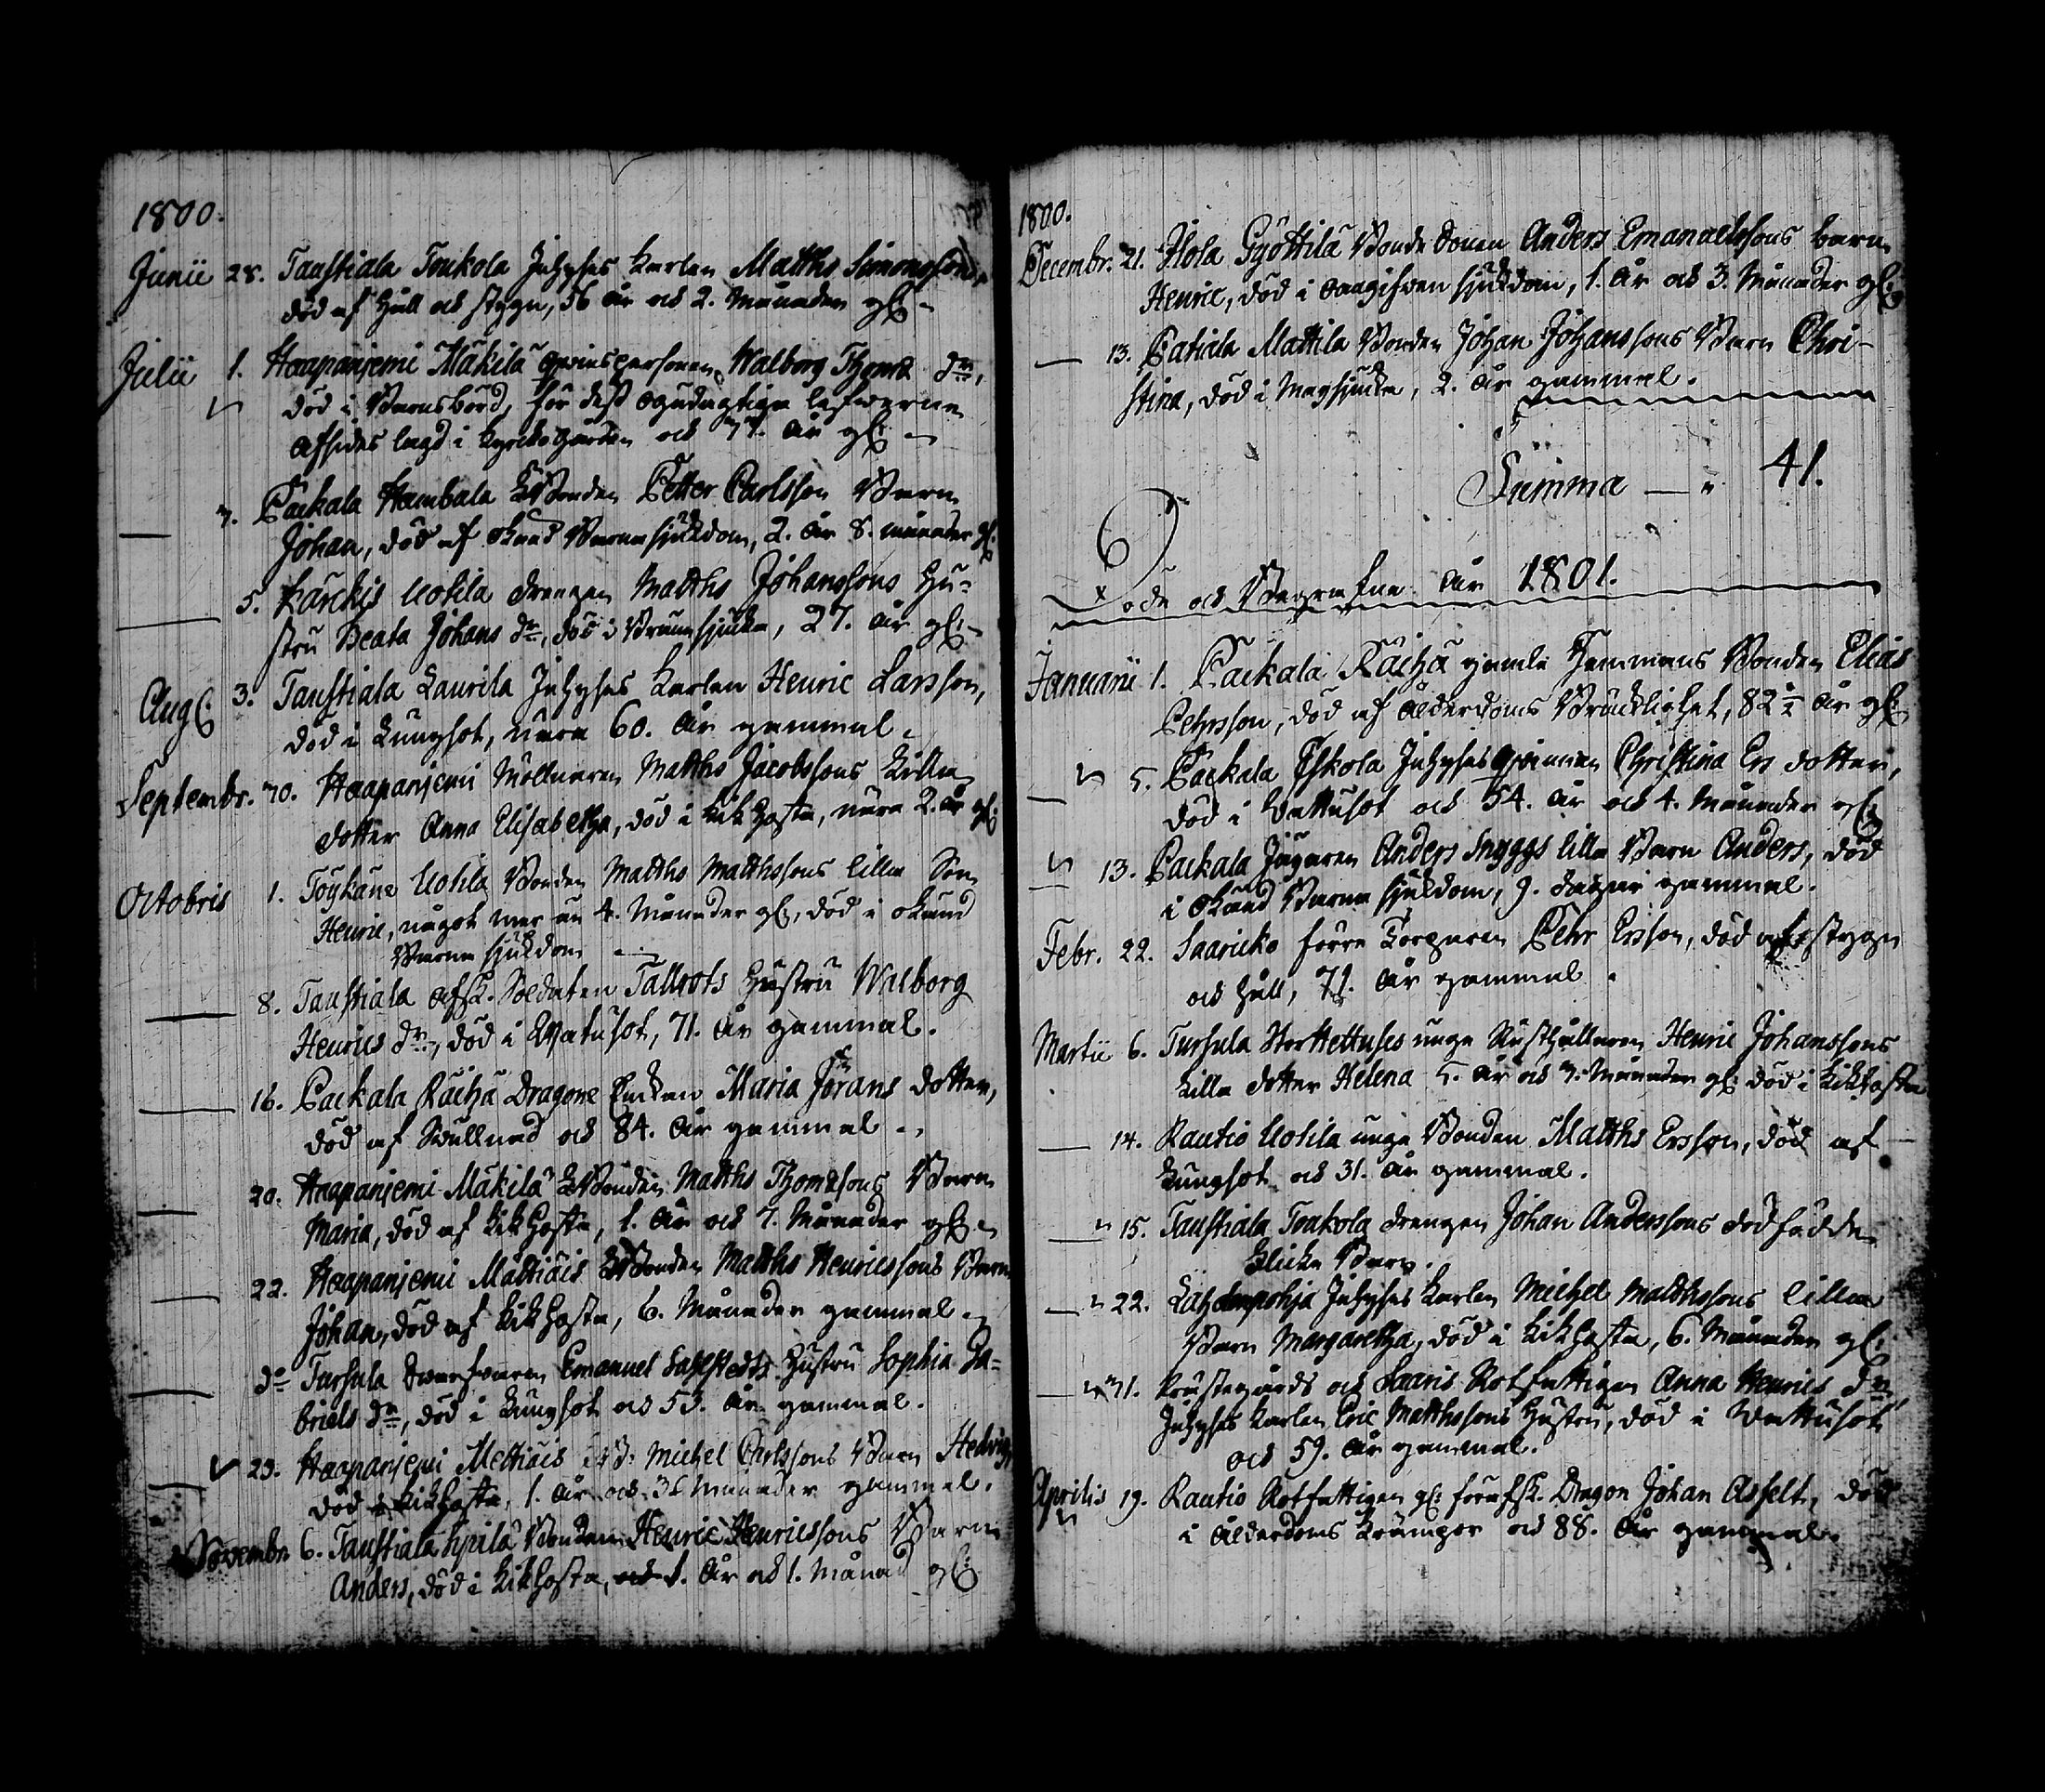 1800.
Junii 28. Taustiala Toukola Inhyses Karlen Matths Simonsson,
död af Håll och stygn, 56 år och 2. Månader gl:
Julii 1. Haapanjemi Mäkilä Qvinspersonen Walborg Thoms dr,
död i Barnsbörd, för dess ogudagtiga lefwerne
afsides lagd i Kyrkogården och 37. år gl:
7. Packala Hambala Bonden Petter Carlsson Barn
Johan, död af okänd Barnasjukdom, 2. år 8. månader gl:
5. Kärckis Uotila Drengen Matths Johanssons Hu-
stru Beata Johans dr, död i Brännsjuka, 27. år gl:
Aug: 3. Taustiala Laurila Inhyses Karlen Henric Larsson,
död i Lungsot, nära 60. år gammal.
Septembr. 30. Haapanjemi Möllnaren Matths Jacobssons Lilla
dotter Anna Elisabetha, död i Kikhosta, nära 2. år gl:
Octobris 1. Töykäne Uotila Bonden Matths Matthssons lilla Son
Henric, något mer än 4. Månader gl:, död i okänd
Barna sjukdom
8. Taustiala afsk. Soldaten Tallrots Hustru Walborg
Henrics dr, död i Watusot, 71. år gammal.
16. Packala Räihä Dragone Enckan Maria Jörans dotter,
död af Swullnad och 84. år gammal.
20. Haapanjemi Mäkilä Bonden Matths Thomssons Barn
Maria, död af Kikhosta, 1. år och 7. Månader gl:
22. Haapanjemi Mattiais Bonden Matths Henricssons Barn
Johan, död af Kikhosta, 6. Månader gammal.
do Tursula Emanuel Hustru Sophia Ga-
briels dr, död i Lungsot och 53. år gammal.
23. Haapanjemi Mettiäis Michel Carlssons Barn Hedvig,
död i Kikhosta, 1. år och Månader gammal.
Novembr. 6. Taustiala Bonden Henric Henricssons Barn
Anders, död i Kikhosta, 1. år och 1. Månad gl:
1800.
Decembr. 21. Illola Gyöttilä Bonde Sonen Anders Emanuelssons barn
Henric, död i oangifwen sjukdom, 1. år och 3. Månader gl:
13. Patiala Mattila Bonden Johan Johanssons Barn Chri-
stina, död i Magsjuka, 2. år gammal.
Summa — 41.
Döde och Begrafne år 1801.
Januarii 1. Packala Räihä gamle Hemmans Bonden Elias
Pehrsson, död af ålderdoms Bräcklighet, 82 1/2 år gl:
5. Packala Eskola Inhyses qvinnan Christina Ers dotter,
död i Wattusot och 54. år och 4. Månader gl:
13. Packala Jägaren Anders Snyggs lilla Barn Anders, död
i okänd Barna sjukdom, 9. dagar gammal.
Febr. 22. Saaricko förre Torparen Pehr Ersson, död af stygn
och håll, 71. år gammal.
Martii 6. Tursula StorHettuses unge Rusthållaren Henric Johanssons
Lilla dotter Helena 5. år och 7. Månader gl: död i Kikhosta
14. Rautio Uotila unge Bonden Matths Ersson, död af
Lungsot och 31. år gammal.
15. Taustiala Toukola Drengen Johan Anderssons dödfödde
Flicke Barn.
22. Lahdenpohja Inhyses Karlen Michel Matthssons lilla
Barn Margaretha, död i Kikhosta, 6. Månader gl:
31. Prästegårds och Saaris Rotfattigen Anna Henrics dr,
Inhyses Karlen Eric Matthssons Hustru, död i Wattusot
och 59. år gammal.
Aprilis 19. Rautio Rotfattigen gl: förafsk. Dragon Johan Asfelt, död
i ålderdoms Krämpor och 88. år gammal.